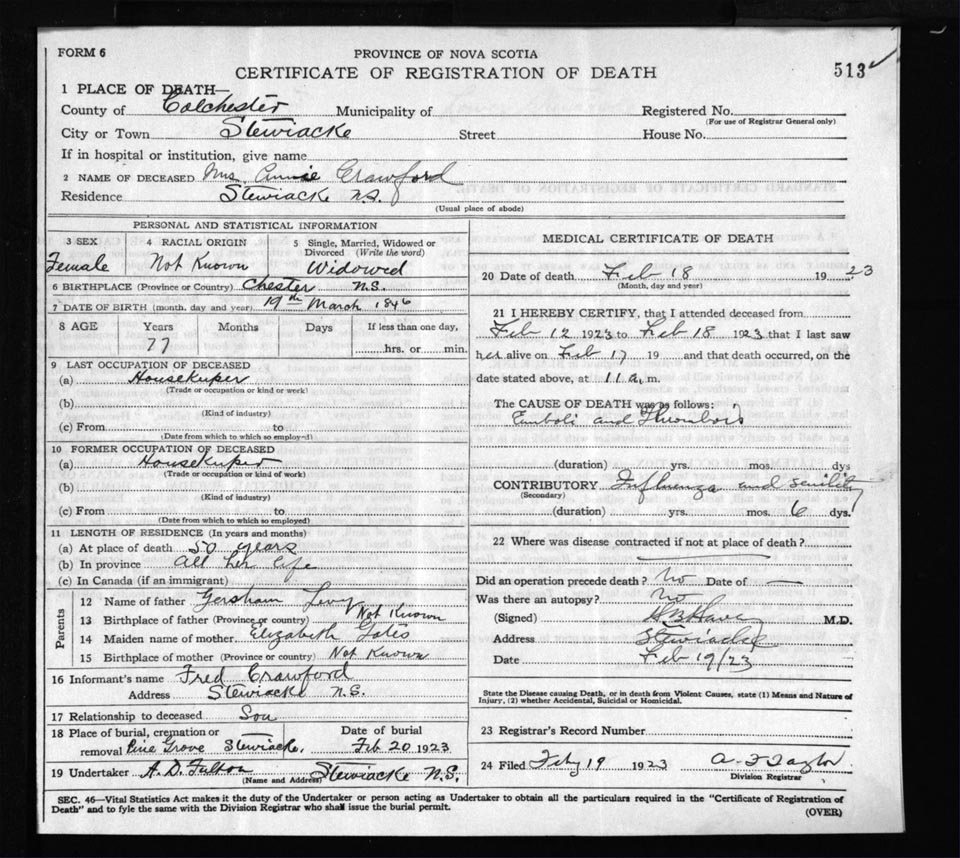 FORM 6
PROVINCE OF NOVA SCOTIA
CERTIFICATE OF REGISTRATION OF DEATH
513
1 PLACE OF DEATH—
County of Colchester Municipality of Registered No.
(For use of Registrar General only)
City or Town Stewiacke Street House No.
If in hospital or institution, give name
2 NAME OF DECEASED Mrs. Annie Crawford
Residence Stewiacke N.S.
(Usual place of abode)
PERSONAL AND STATISTICAL INFORMATION
3 SEX 4 RACIAL ORIGIN 5 Single, Married, Widowed or Divorced (Write the word)
Female Not Known Widowed
6 BIRTHPLACE (Province or Country) Chester N.S.
7 DATE OF BIRTH (month, day and year) 19th March 1846
8 AGE Years Months Days If less than one day,
77 hrs. or min.
9 LAST OCCUPATION OF DECEASED
(a) Housekeeper
(Trade or occupation or kind or work)
(b)
(Kind of industry)
(c) From to
(Date from which to which so employed)
10 FORMER OCCUPATION OF DECEASED
(a) Housekeeper
(Trade or occupation or kind of work)
(b)
(Kind of industry)
(c) From to
(Date from which to which so employed)
11 LENGTH OF RESIDENCE (In years and months)
(a) At place of death 50 years
(b) In province all her life
(c) In Canada (if an immigrant)
Parents
12 Name of father Gersham Levy
13 Birthplace of father (Province or country) Not Known
14 Maiden name of mother Elizabeth
15 Birthplace of mother (Province or country) Not Known
16 Informant's name Fred Crawford
Address Stewiacke N.S.
17 Relationship to deceased Son
18 Place of burial, cremation or Date of burial
removal Pine Grove Stewiacke. Feb 20 1923
19 Undertaker A. D. Fulton Stewiacke N.S.
(Name and Address)
MEDICAL CERTIFICATE OF DEATH
20 Date of death Feb 18 19 23
(Month, day and year)
21 I HEREBY CERTIFY, that I attended deceased from
Feb 12 1923 to Feb 18 1923 that I last saw
her alive on Feb 17 19 and that death occurred, on the
date stated above, at 11 a.m.
The CAUSE OF DEATH was as follows:
Emboli and Thrombois
(duration) yrs. mos. dys
CONTRIBUTORY Influenza and senility
(Secondary)
(duration) yrs. mos. 6 dys.
22 Where was disease contracted if not at place of death?
Did an operation precede death? No Date of —
Was there an autopsy? No
(Signed) M.D.
Address Stewiacke
Date Feb 19/23
State the Disease causing Death, or in death from Violent Causes, state (1) Means and Nature of
Injury, (2) whether Accidental, Suicidal or Homicidal.
23 Registrar's Record Number
24 Filed Feby 19 1923 A. F. Taylor
Division Registrar
SEC. 46—Vital Statistics Act makes it the duty of the Undertaker or person acting as Undertaker to obtain all the particulars required in the "Certificate of Registration of
Death" and to fyle the same with the Division Registrar who shall issue the burial permit.
(OVER)